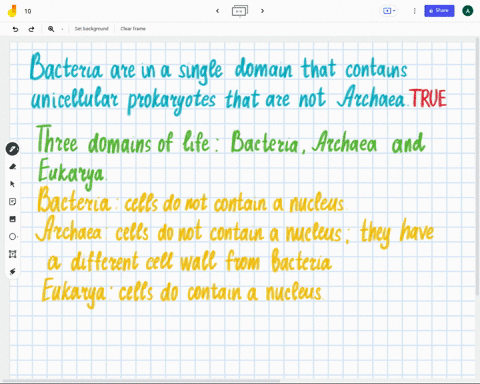 10
Share
A
Set background
Clear frame
Bacteria are in a single domain that contains
unicellular prokaryotes that are not Archaea. TRUE
Three domains of life: Bacteria, Archaea and
Eukarya.
Bacteria: cells do not contain a nucleus
Archaea: cells do not contain a nucleus; they have
a different cell wall from Bacteria
Eukarya: cells do contain a nucleus